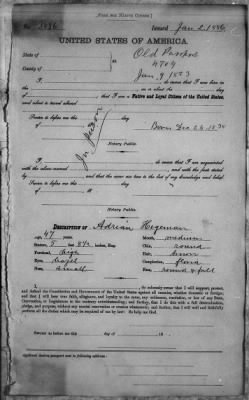 [FORM FOR NATIVE CITIZEN.]
Issued Jan 2. 1886
UNITED STATES OF AMERICA.
State of
Old Passport
County of
4704
Jan 9 1883
I,
do swear that I was born in
on or about the
day
of
that I am a Native and Loyal Citizen of the United States,
and about to travel abroad.
Sworn to before me this
day of
Born Dec 26 1838
Notary Public.
I,
do swear that I am acquainted
with the above named
and with the facts stated
by
and that the same are true to the best of my knowledge and belief.
Sworn to before me this
day of
Notary Public.
DESCRIPTION OF Adrian Hegeman
Age, 47 years,
Mouth, medium
Stature, 5 feet 8½ inches, Eng.
Chin, round
Forehead, high
Hair, brown
Eyes, hazel
Complexion,
Nose, small
Face, round & full
I,
do solemnly swear that I will support, protect,
and defend the Constitution and Government of the United States against all enemies, whether domestic or foreign;
and that I will bear true faith, allegiance, and loyalty to the same, any ordinance, resolution, or law of any State,
Convention, or Legislature to the contrary notwithstanding; and further, that I do this with a full determination,
pledge, and purpose, without any mental reservation or evasion whatsoever; and further, that I will well and faithfully
perform all the duties which may be required of me by law: So help me God.
Sworn to before me this
day of
18
Applicant desires passport sent to following address: